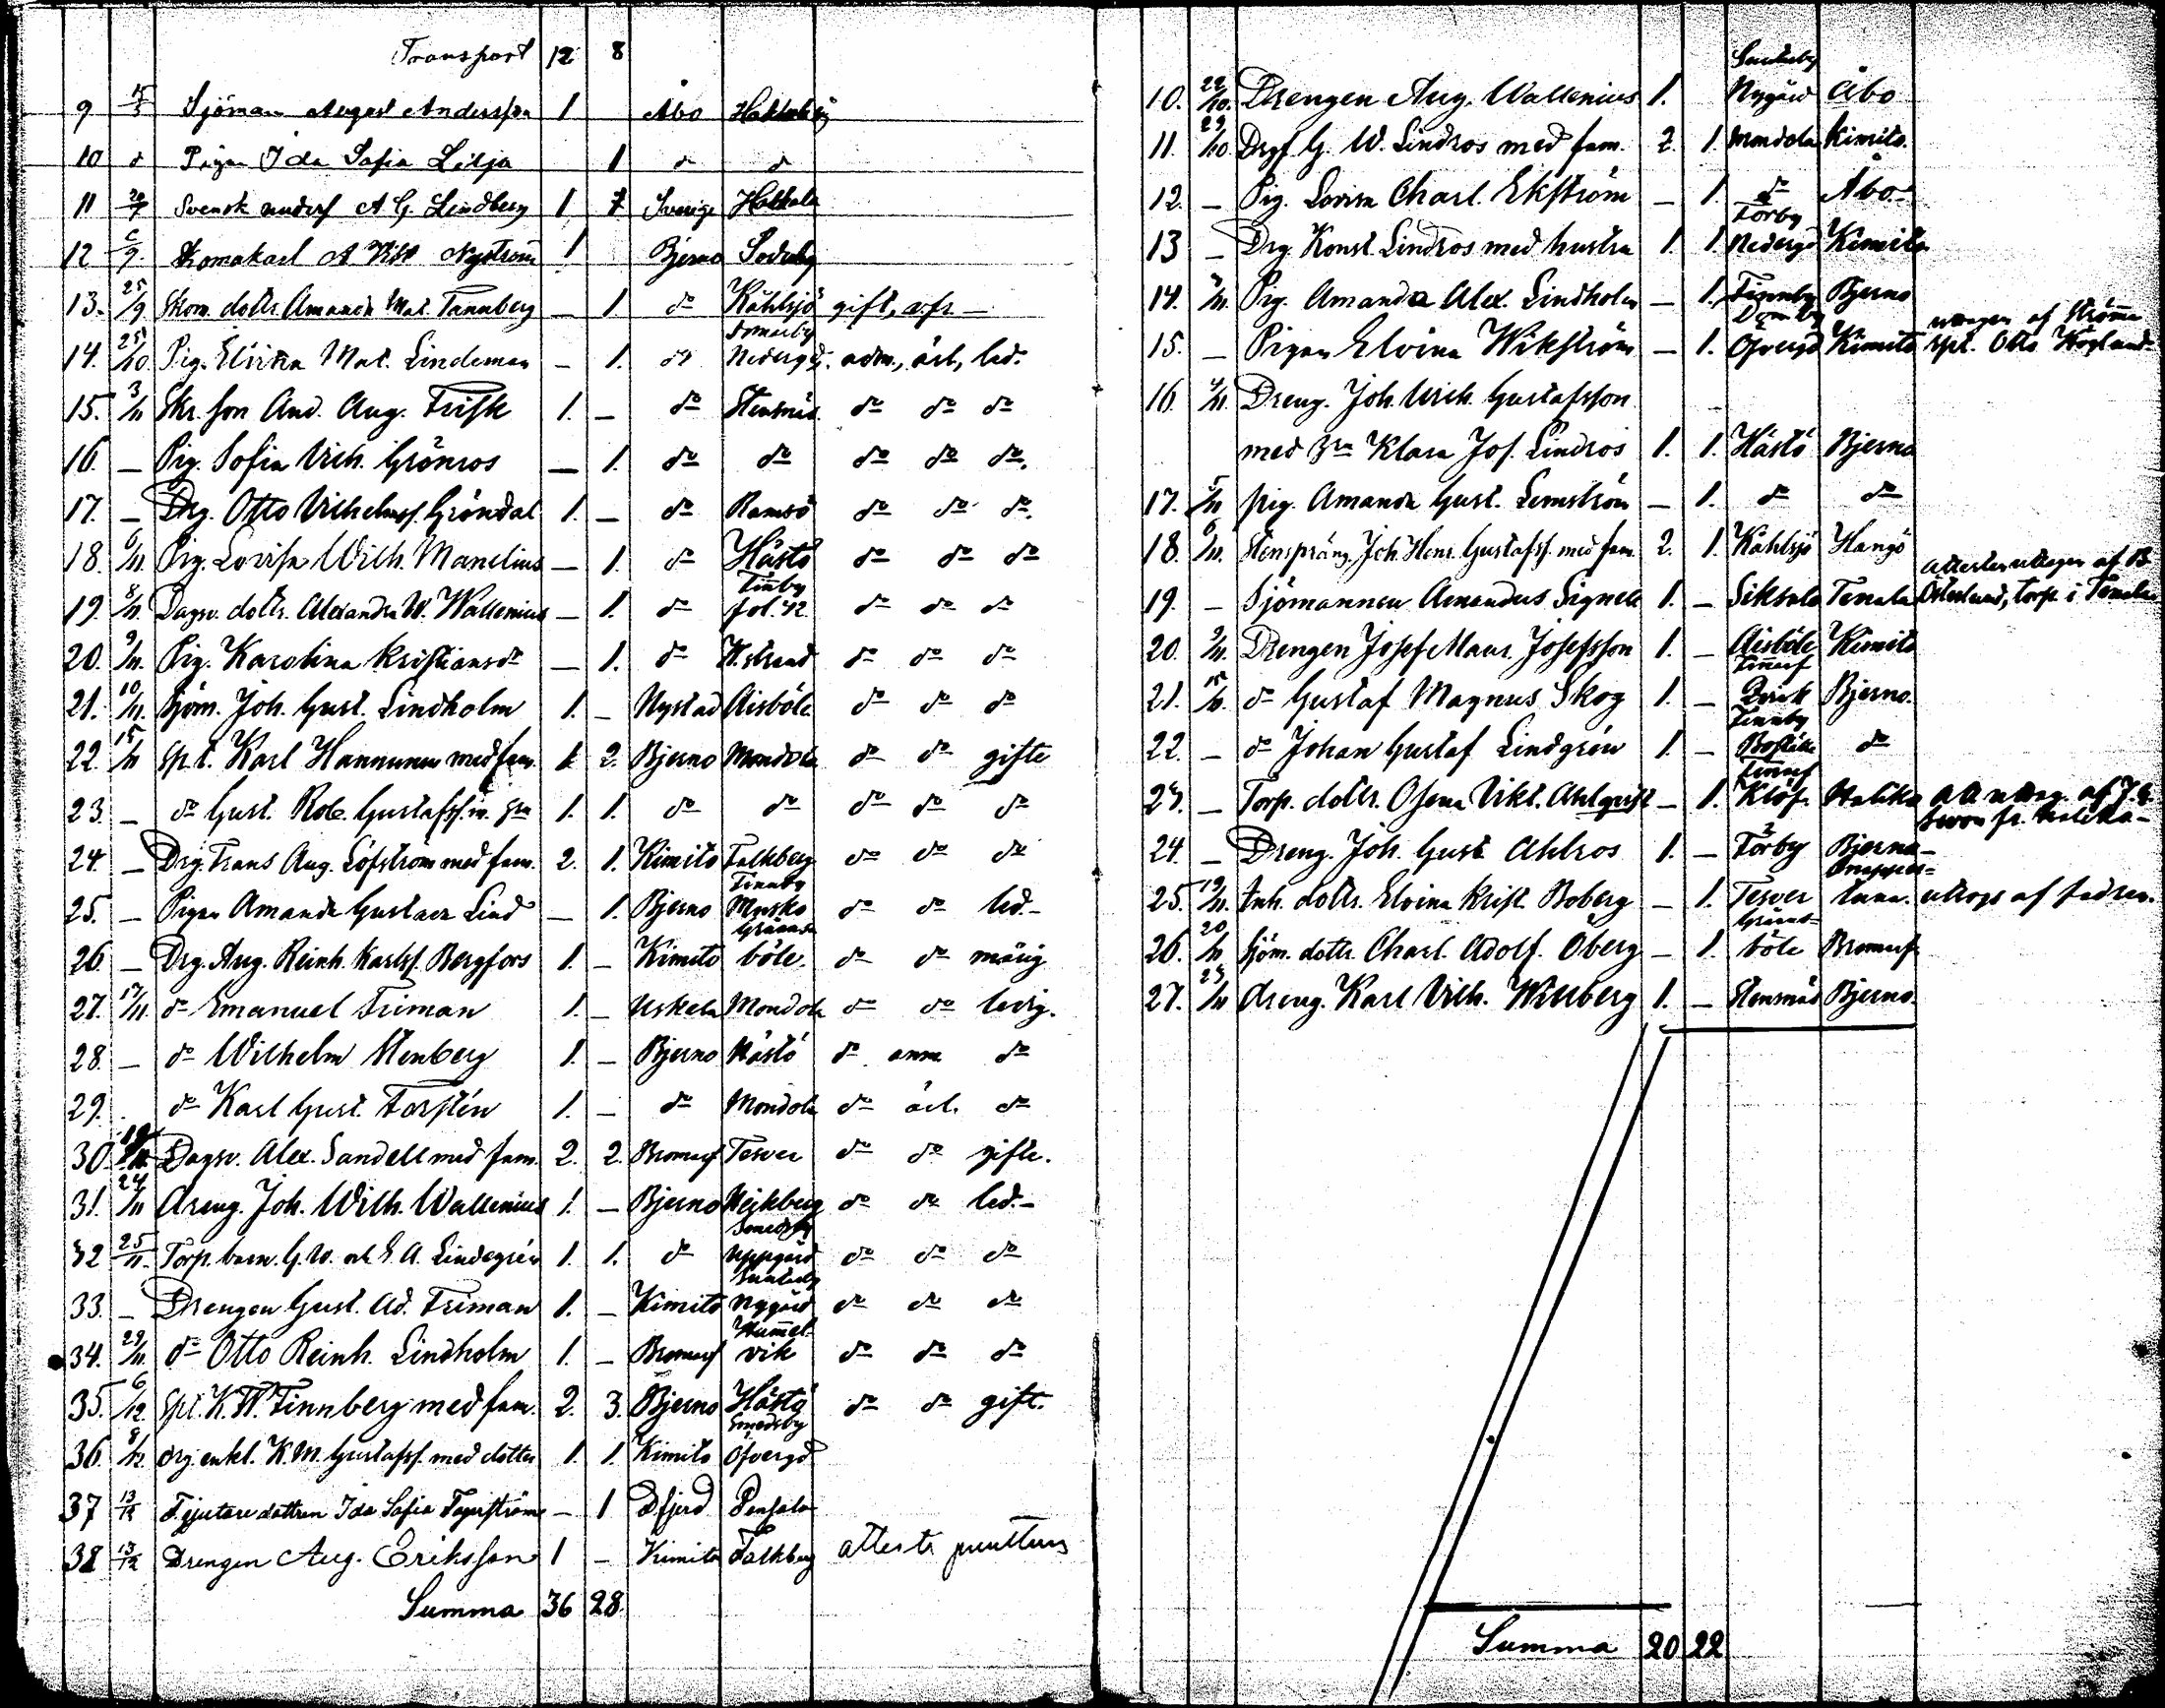 Transport 12 8
9 Sjöman August Andersson 1 Åbo
10 d Pigan Ida Sofia Lilja 1 d d
11 Svensk A G. Lindberg 1 Sverige
12 A Nyström 1 Bjerno Söderby
13. 25/9 Skom. dottr. Amanda Mat. Tannberg — 1. do Kåhlsjö gift,
14. 25/10 Pig. Elvira Mat. Lindeman — 1. do Nedergd. adm., ärl., led.
15. 3/11 Skr. son And. Aug. Frisk 1. — do Stensnäs do do do
16. — Pig. Sofia Vilh. Grönros — 1. do do do do do.
17. — Drg. Otto Vilhelmsf. Gröndal 1. — do Ramsö do do do.
18. 6/11. Pig. Lovisa Wilh. Manelius — 1. do Håstö do do do
19. 8/11. Dagsv. dottr. Alexandra W. Wallenius — 1. do Finnby do do do
20. 9/11. Pig. Karolina Kristiansdr — 1. do W.strand do do do
21. 10/11. Sjöm. Joh. Gust. Lindholm 1. — Nystad Aisböle do do do
22. 15/11 Spt. Karl Hannunen med fam. 1. 2. Bjerno Mondola do do gifte
23. — do Gust. Rob. Gustafss. 1. 1. do do do do do
24. — Drg. Frans Aug. Löfström med fam. 2. 1. Kimito Falkberg do do do
25. — Pigan Amanda Gustava Lind — 1. Bjerno Finnby do do led.—
26. — Drg. Aug. Reinh. Karlsf. Bergfors 1. — Kimito böle. do do
27. 17/11. do Emanuel Friman 1. — Uskela Mondola do do ledig.
28. — do Wilhelm Stenberg 1. — Bjerno Håstö do anm do
29. do Karl Gust. Forstén 1. — do Mondola do ärl. do
30. Dagsv. Alex. Sandell med fam. 2. 2. Bromarf Tesver do do gifte.
31. 24/11 Dreng. Joh. Wilh. Wallenius 1. — Bjerno do do led.—
32 25/11. Torp. barn. G. W. och E. A. Lindegrén 1. 1. do Smedsby Uppgård do do do
33. — Drengen Gust. Ad. Friman 1. — Kimito Nygård do do do
34. 29/11. do Otto Reinh. Lindholm 1. — Bromarf Hummelvik do do do
35. 6/12. Spt. K. W. Finnberg med fam. 2. 3. Bjerno Håstö do do gift.
36. 8/12. Drg. enkl. K. M. Gustafss. med dotter 1. 1. Kimito Smedsby Öfvergd
37 13/12 dottren Ida Sofia Fagerström — 1 Dfjerd Pensala
38 13/12 Drengen Aug. Eriksson 1 — Kimito Falkberg attest
Summa 36 28.
10. 22/10. Drengen Aug. Wallenius 1. Nygård Åbo
11. 29/10. Drgf. G. W. Lindros med fam. 2. 1. Mondola Kimito.
12. — Pig. Lovisa Charl. Ekström — 1. do Åbo—
13 — Drg. Konst. Lindros med hustru 1. 1. Förby Nedergd Kimito
14. Pig. Amanda Alex. Lindholm — 1. Finnby Bjerno
15. — Pigan Elvina Wikström — 1. Öfvergd Kimito spt. Otto Höglund
16. 4/11. Dreng. Joh. Urich. Gustafsson
med Klara Jos. Lindros 1. 1. Håstö Bjerno
17. 5/11 pig. Amanda Gust. Lemström — 1. do do
18. 6/11. Stenspräng. Joh. Henr. Gustafsf. med fam. 2. 1. Kåhlsjö Hangö
19. — Sjömannen Amandus Signell 1. — Siksala Tenala attesten uttagen af B. Österlund, torp. i Tenala
20. 9/11. Drengen Josef Maur. Josefsson 1. — Aisböle Kimito
21. 15/11. do Gustaf Magnus Skog 1. — Bjerno.
22. — do Johan Gustaf Lindgrén 1. — Finnby do
23. — Torp. dottr. Osena Vikt. Ahlqvist — 1. Halikko
24. — Dreng. Joh. Gust Ahlros 1. — Förby Bjerno—
25. 19/11. Inh. dottr. Elvina Krist. Boberg — 1. Tesver af fadren.
26. 20/11 Sjöm. dottr. Charl. Adolf. Öberg — 1. böle Bromarf
27. 23/11 Dreng. Karl Vilh. Willberg 1. — Stensnäs Bjerno
Summa 20 22